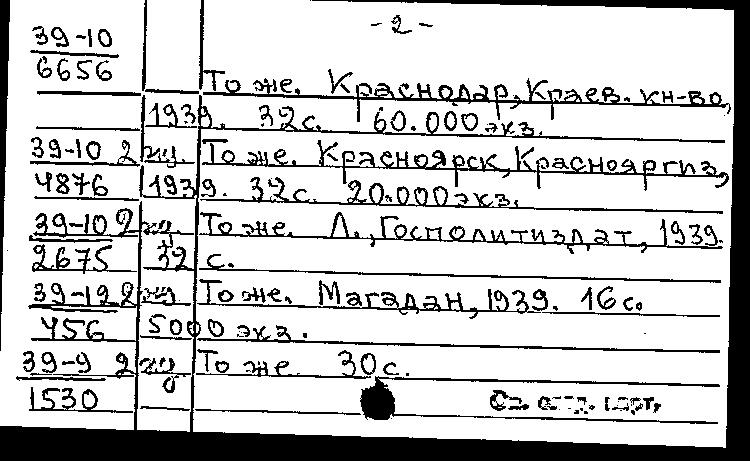 - 2 -
39-10
6656
То же. Краснодар, Краев. кн-во,
1939. 32с. 60.000 экз.
39-10 2 То же. Красноярск, Краснояргиз,
4876 1939. 32с. 20.000 экз.
39-10 2 То же. Л., Госполитиздат, 1939.
2675 32 с.
39-12 2 То же. Магадан, 1939. 16 с.
456 5000 экз.
39-9 2 То же 30 с.
1530 См. след. карт.